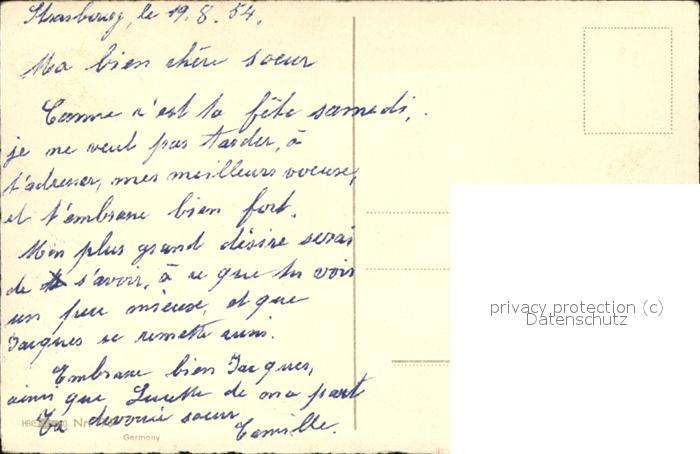 Strasbourg, le 19.8.54.
Ma bien chère soeur
Comme c'est ta fête samedi,
je ne veut pas tarder, à
t'adresser, mes meilleurs voeuxe,
et t'embrasse bien fort.
Mon plus grand désire serai
de s'avoir, à ce que tu vois
un peu mieuxe, et que
Jacques se remette aussi.
Embrasse bien Jacques,
ainsi que Lucette de ma part
Ta devouée soeur
Camille.
Nr.
Germany
privacy protection (c)
Datenschutz